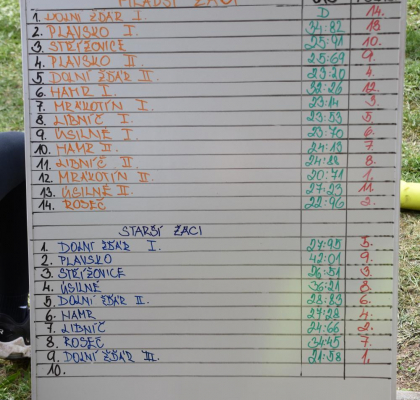 MLADŠÍ ŽÁCI
1. DOLNÍ ŽĎÁR I. D 14.
2. PLAVSKO I. 34:82 13.
3. STŘÍŽOVICE 25:91 10.
4. PLAVSKO II. 25:69 9.
5. DOLNÍ ŽĎÁR II. 23:20 4.
6. HAMR I. 32:26 12.
7. MRÁKOTÍN I. 23:14 3.
8. LIBNÍČ I. 23:53 5.
9. ÚSILNÉ I. 23:70 6.
10. HAMR II. 24:13 7.
11. LIBNÍČ II. 24:88 8.
12. MRÁKOTÍN II. 20:71 1.
13. ÚSILNÉ II. 27:23 11.
14. ROSEČ 22:96 2.
STARŠÍ ŽÁCI
1. DOLNÍ ŽĎÁR I. 27:95 5.
2. PLAVSKO 42:01 9.
3. STŘÍŽOVICE 26:51 3.
4. ÚSILNÉ 36:21 8.
5. DOLNÍ ŽĎÁR II. 28:83 6.
6. HAMR 27:28 4.
7. LIBNÍČ 24:66 2.
8. ROSEČ 34:45 7.
9. DOLNÍ ŽĎÁR III. 21:58 1.
10.